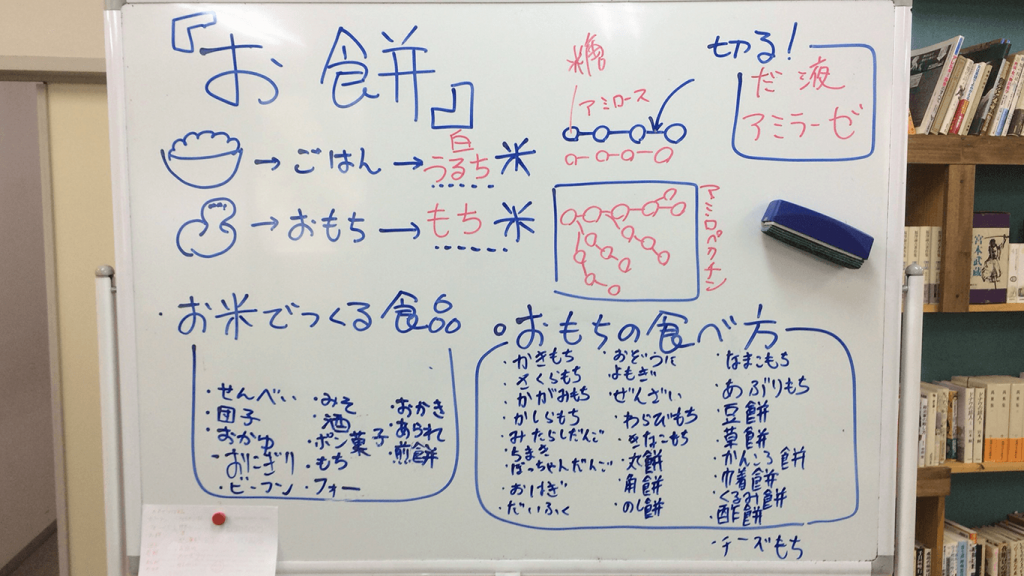 『お餅』
→ごはん→うるち米
白
→おもち→もち米
糖
アミロース
切る!
だ液
アミラーゼ
アミロペクチン
・お米でつくる食品
・せんべい
・団子
・おかゆ
・おにぎり
・ビーフン
・みそ
・酒
・ポン菓子
・もち
・フォー
・おかき
・あられ
・煎餅
○おもちの食べ方
・かきもち
・さくらもち
・かがみもち
・かしらもち
・みたらしだんご
・ちまき
・ぼっちゃんだんご
・おはぎ
・だいふく
・おぞうに
・よもぎ
・ぜんざい
・わらびもち
・きなこもち
・丸餅
・角餅
・のし餅
・なまこもち
・あぶりもち
・豆餅
・草餅
・かんころ餅
・巾着餅
・くるみ餅
・酢餅
・チーズもち
宮本武蔵